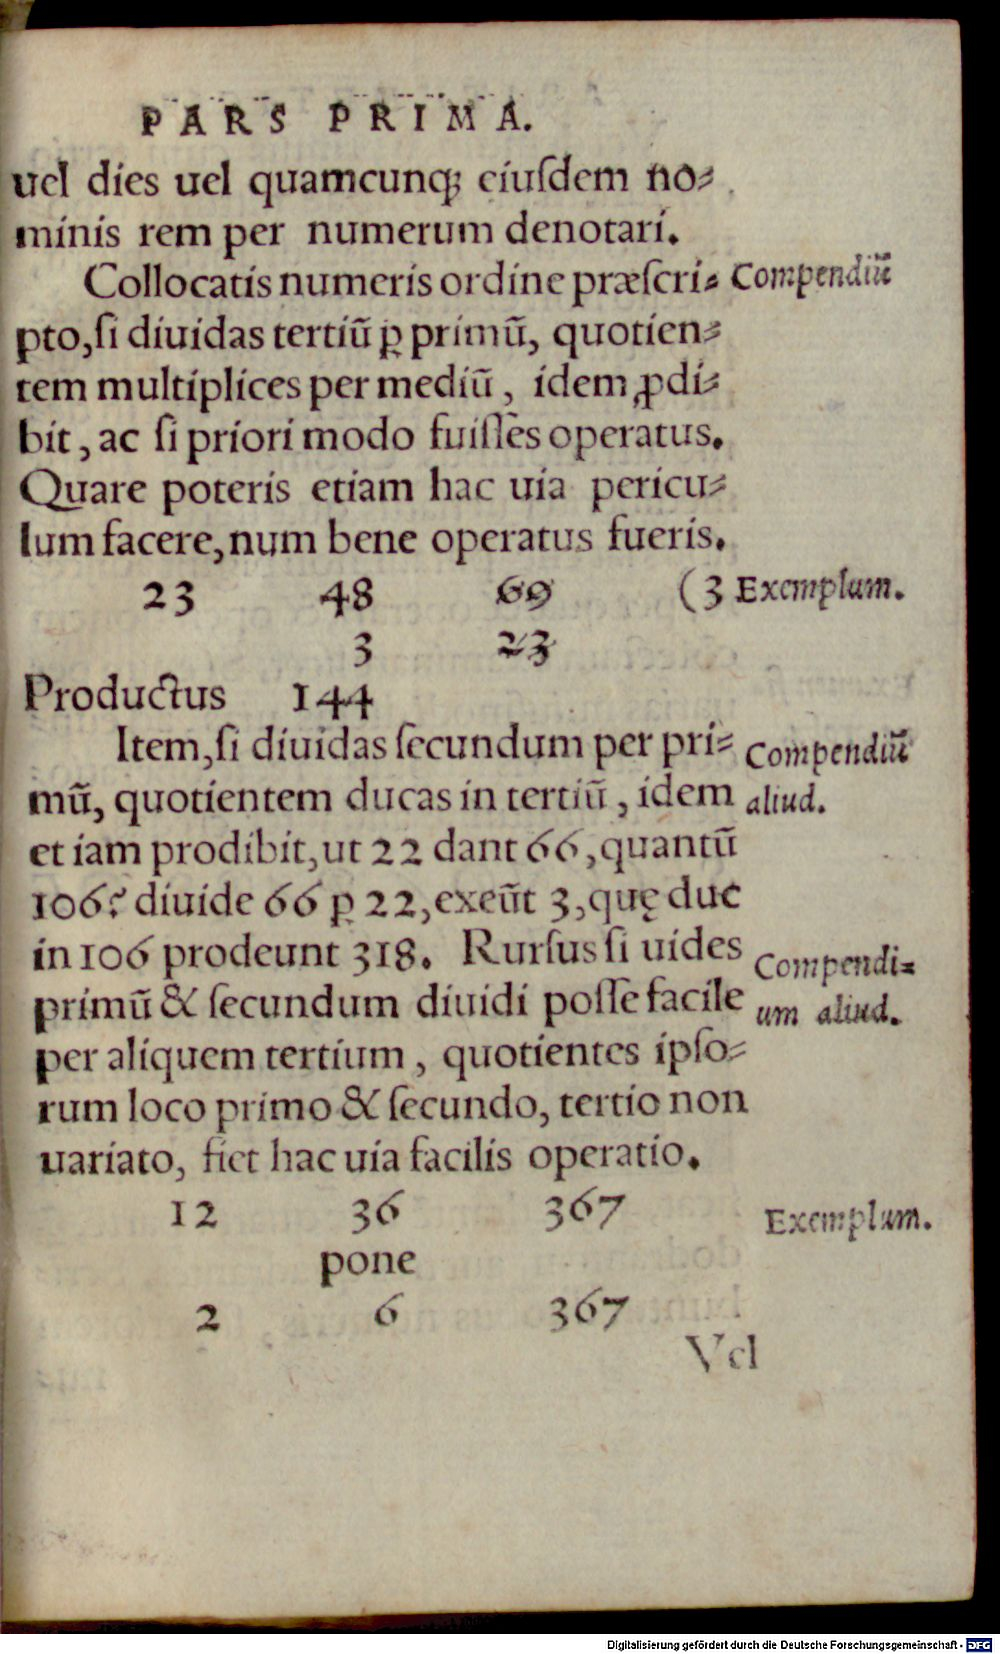 PARS PRIMA.
uel dies uel quamcunq; eiusdem no⸗
minis rem per numerum denotari.
Collocatis numeris ordine præscri⸗ Compendiũ
pto, si diuidas tertiũ ꝑ primũ, quotien⸗
tem multiplices per mediũ, idem ꝓdi⸗
bit, ac si priori modo fuisses operatus.
Quare poteris etiam hac uia pericu⸗
lum facere, num bene operatus fueris.
23 48 69 (3 Exemplum.
3 23
Productus 144
Item, si diuidas secundum per pri⸗ Compendiũ
mũ, quotientem ducas in tertiũ, idem aliud.
et iam prodibit, ut 22 dant 66, quantũ
106? diuide 66 ꝑ 22, exeũt 3, quę duc
in 106 prodeunt 318. Rursus si uides Compendi⸗
primũ & secundum diuidi posse facile um aliud.
per aliquem tertium, quotientes ipso⸗
rum loco primo & secundo, tertio non
uariato, fiet hac uia facilis operatio.
12 36 367 Exemplum.
pone
2 6 367
Vel
Digitalisierung gefördert durch die Deutsche Forschungsgemeinschaft - DFG